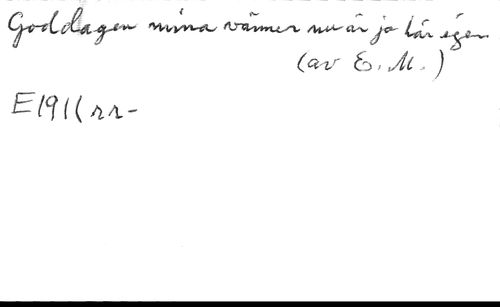 Goddagen mina vänner nu är ja här igen
(av E. M.)
E1911(rr-